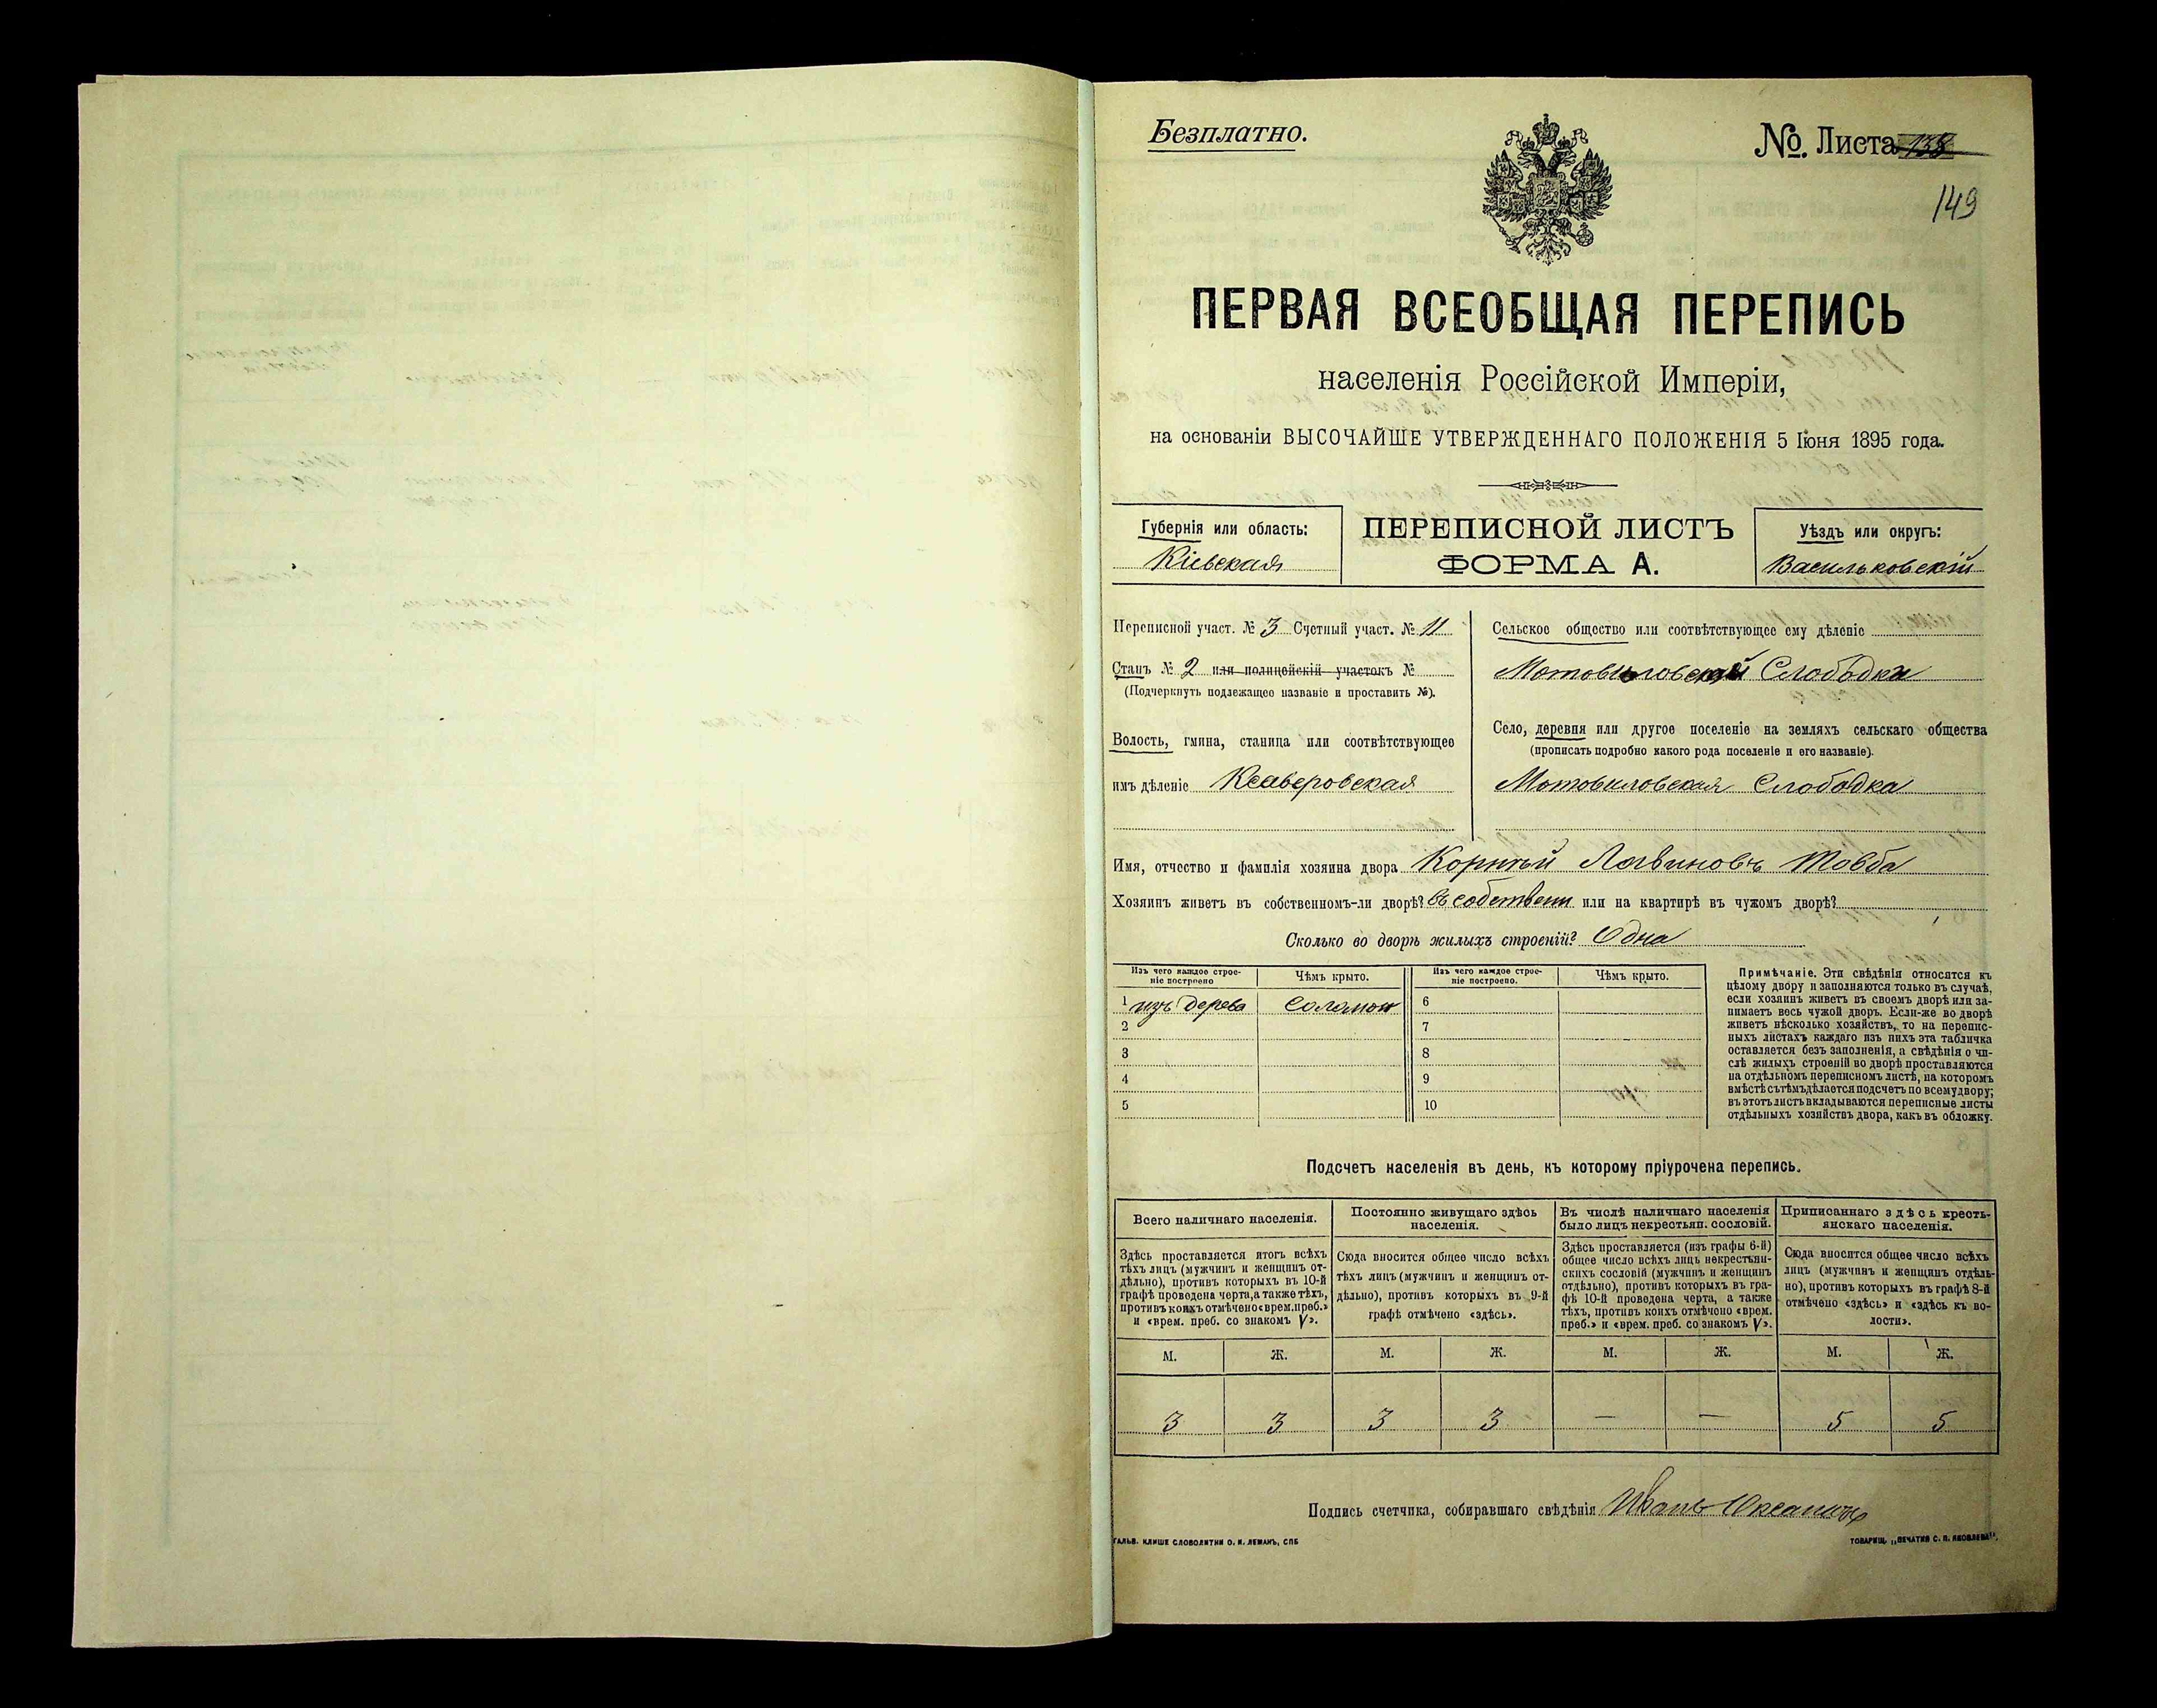 Безплатно.
№. Листа 138
149
ПЕРВАЯ ВСЕОБЩАЯ ПЕРЕПИСЬ
населенія Россійской Имперіи,
на основаніи ВЫСОЧАЙШЕ УТВЕРЖДЕННАГО ПОЛОЖЕНІЯ 5 Іюня 1895 года.
Губернія или область:
Кіевская
ПЕРЕПИСНОЙ ЛИСТЪ
ФОРМА А.
Уѣздъ или округъ:
Васильковскій
Переписной участ. № 3 Счетный участ. № 11
Станъ № 2 или полицейскій участокъ №
(Подчеркнуть подлежащее названіе и проставить №).
Волость, гмина, станица или соотвѣтствующее
имъ дѣленіе Ксаверовская
Сельское общество или соотвѣтствующее ему дѣленіе
Мотовиловской Слободки
Село, деревня или другое поселеніе на земляхъ сельскаго общества
(прописать подробно какого рода поселеніе и его названіе).
Мотовиловская Слободка
Имя, отчество и фамилія хозяина двора Корнѣй Товба
Хозяинъ живетъ въ собственномъ-ли дворѣ? въ собствени или на квартирѣ въ чужомъ дворѣ?
Сколько во дворѣ жилыхъ строеній? Одна
Изъ чего каждое строе-
ніе построено
Чѣмъ крыто.
Изъ чего каждое строе-
ніе построено.
Чѣмъ крыто.
1 изъ дерева Соломой 6
2 7
3 8
4 9
5 10
Примѣчаніе. Эти свѣдѣнія относятся къ
цѣлому двору и заполняются только въ случаѣ,
если хозяинъ живетъ въ своемъ дворѣ или за-
нимаетъ весь чужой дворъ. Если-же во дворѣ
живетъ нѣсколько хозяйствъ, то на перепис-
ныхъ листахъ каждаго изъ нихъ эта табличка
оставляется безъ заполненія, а свѣдѣнія о чи-
слѣ жилыхъ строеній во дворѣ проставляются
на отдѣльномъ переписномъ листѣ, на которомъ
вмѣстѣ съ тѣмъ дѣлается подсчетъ по всему двору;
въ этотъ листъ вкладываются переписные листы
отдѣльныхъ хозяйствъ двора, какъ въ обложку.
Подсчетъ населенія въ день, къ которому пріурочена перепись.
Всего наличнаго населенія.
Здѣсь проставляется итогъ всѣхъ
тѣхъ лицъ (мужчинъ и женщинъ от-
дѣльно), противъ которыхъ въ 10-й
графѣ проведена черта, а также тѣхъ,
противъ коихъ отмѣчено «врем. преб.»
и «врем. преб. со знакомъ V».
Постоянно живущаго здѣсь
населенія.
Сюда вносится общее число всѣхъ
тѣхъ лицъ (мужчинъ и женщинъ от-
дѣльно), противъ которыхъ въ 9-й
графѣ отмѣчено «здѣсь».
Въ числѣ наличнаго населенія
было лицъ некрестьян. сословій.
Здѣсь проставляется (изъ графы 6-й)
общее число всѣхъ лицъ некрестьян-
скихъ сословій (мужчинъ и женщинъ
отдѣльно), противъ которыхъ въ гра-
фѣ 10-й проведена черта, а также
тѣхъ, противъ коихъ отмѣчено «врем.
преб.» и «врем. преб. со знакомъ V».
Приписаннаго здѣсь кресть-
янскаго населенія.
Сюда вносится общее число всѣхъ
лицъ (мужчинъ и женщинъ отдѣль-
но), противъ которыхъ въ графѣ 8-й
отмѣчено «здѣсь» и «здѣсь къ во-
лости».
М. Ж. М. Ж. М. Ж. М. Ж.
3 3 3 3 — — 5 5
Подпись счетчика, собиравшаго свѣдѣнія Иванъ
ГАЛЬВ. КЛИШЕ СЛОВОЛИТНИ О. И. ЛЕМАНЪ, СПБ
ТОВАРИЩ. „ПЕЧАТНЯ С. П. ЯКОВЛЕВА".